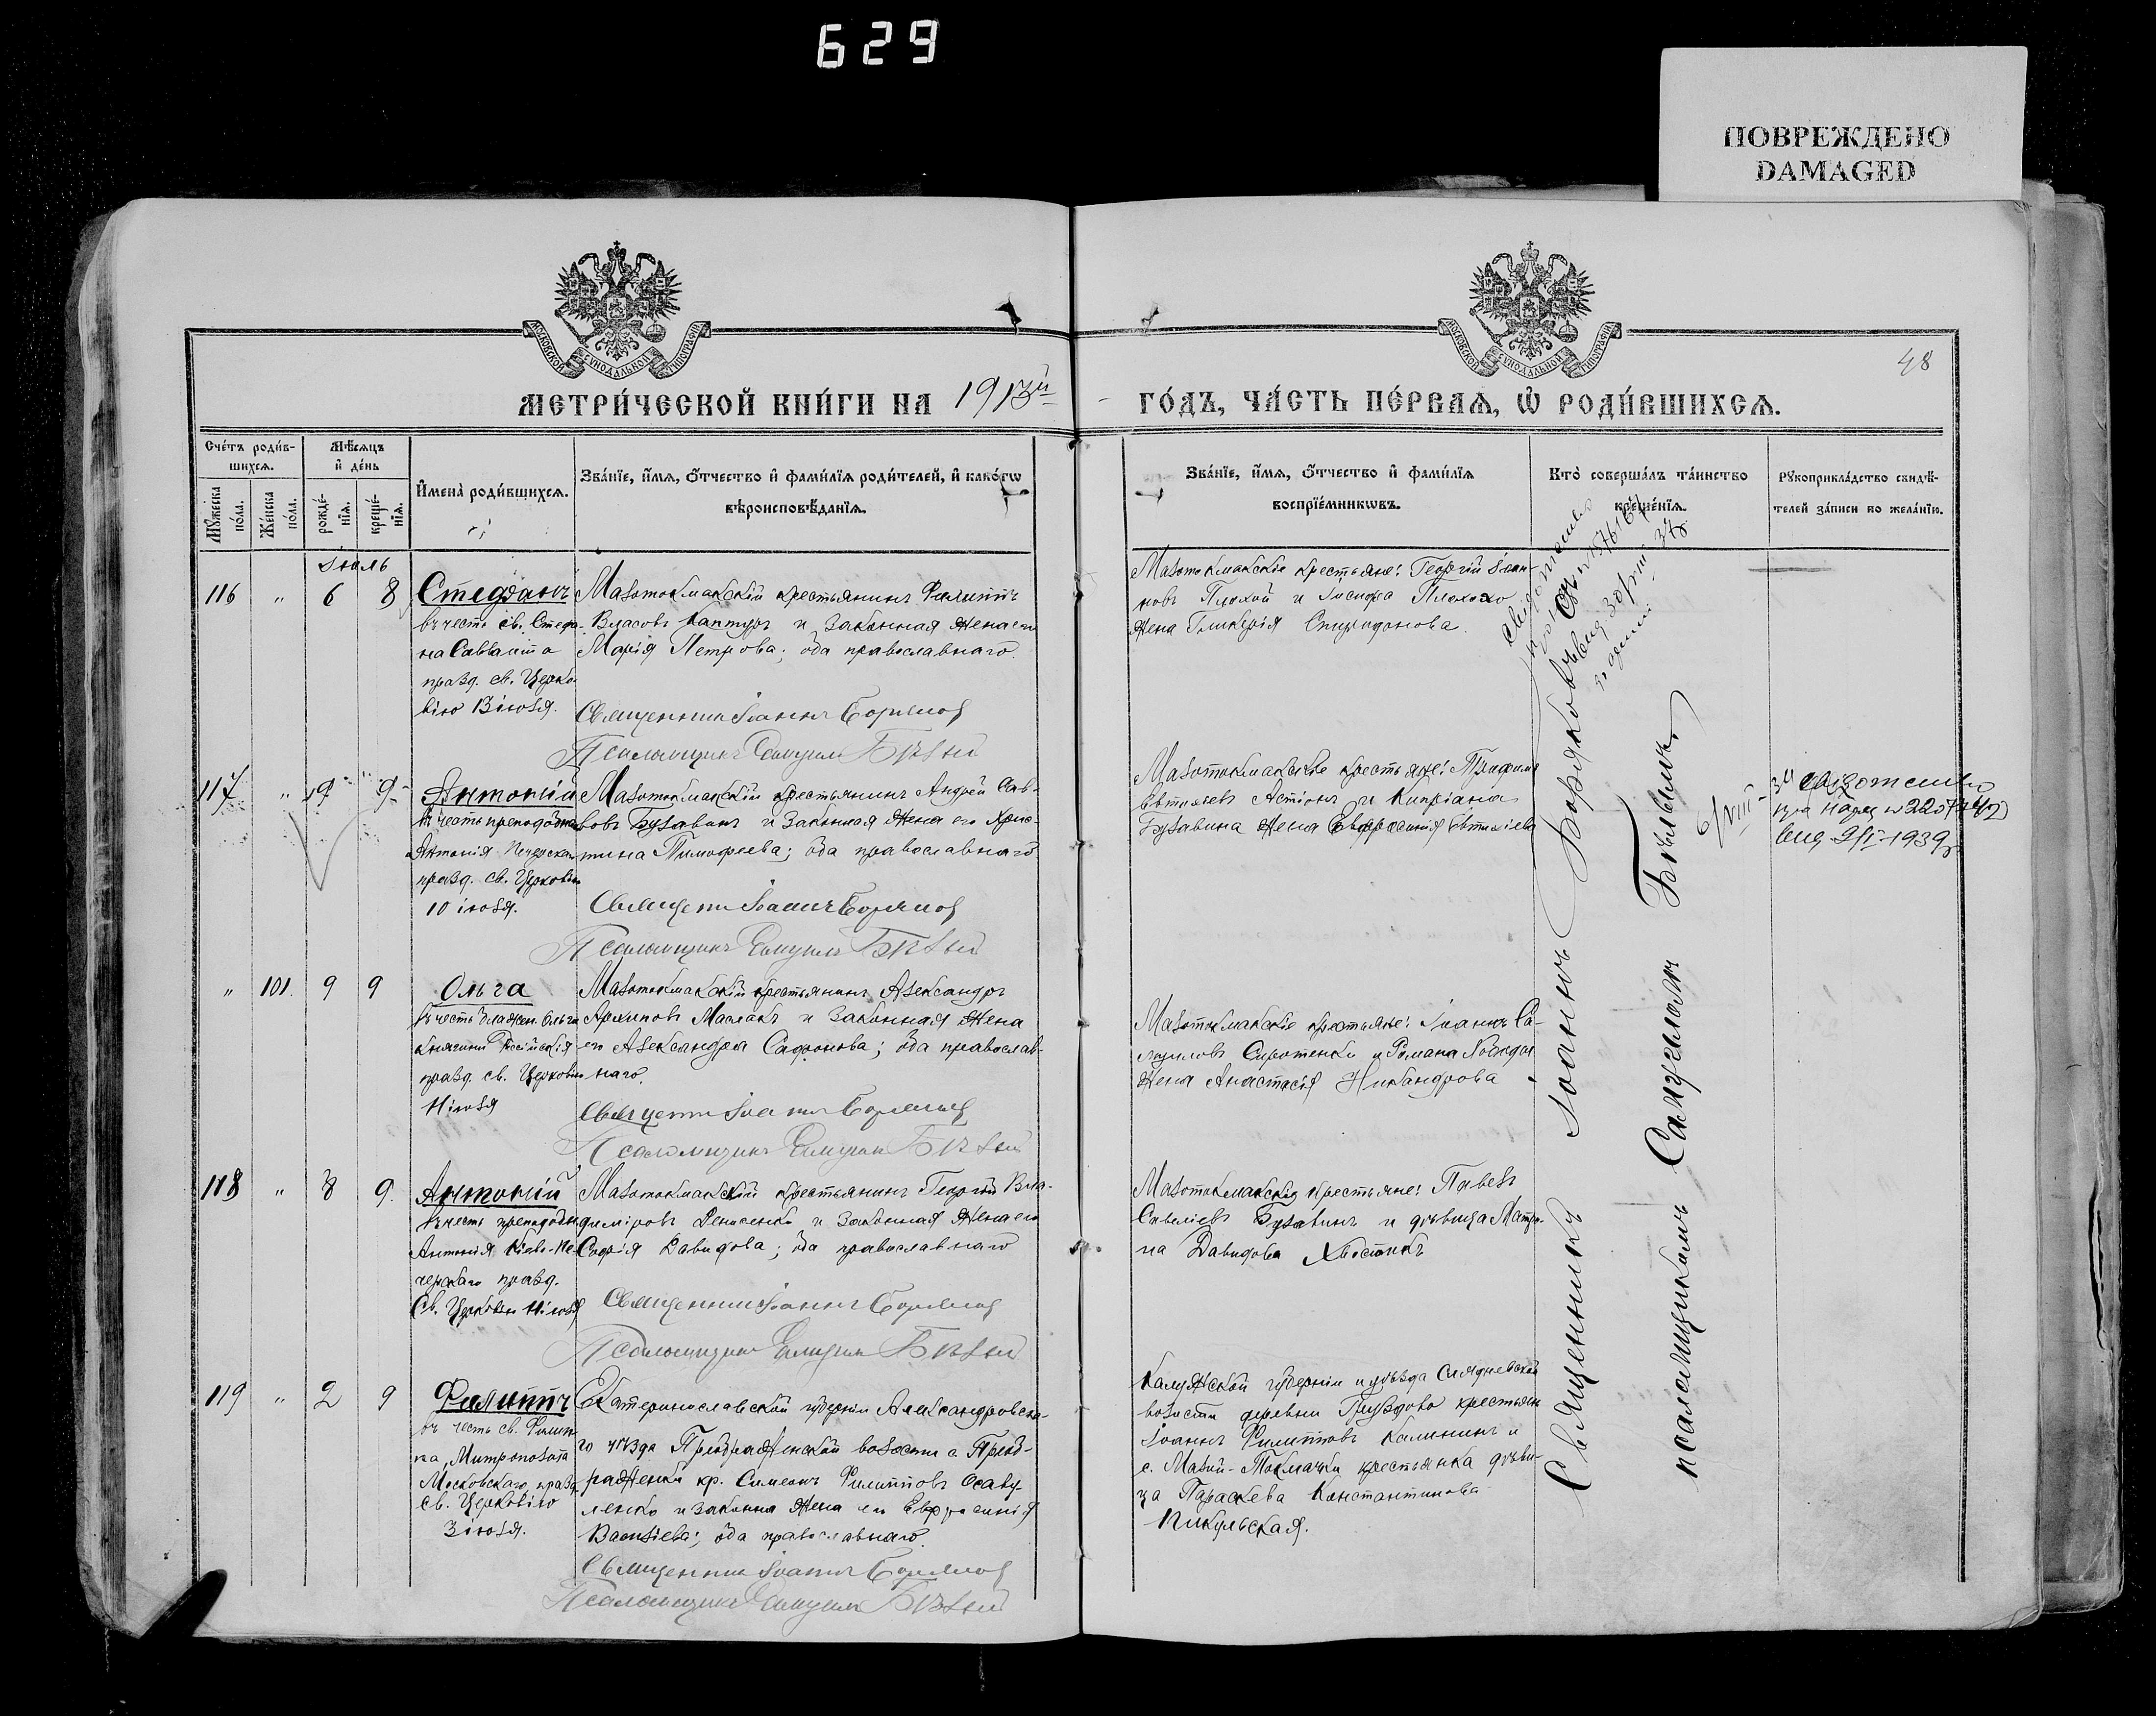 629
ПОВРЕЖДЕНО
DAMAGED
МОСКОВСКОЙ СѴНОДАЛЬНОЙ ТИПОГРАФІИ
МОСКОВСКОЙ СѴНОДАЛЬНОЙ ТИПОГРАФІИ
48
МЕТРИ́ЧЕСКОЙ КНИ́ГИ НА 1913й
ГО́ДЪ, ЧА́СТЬ ПЕ́РВАѦ, Ѡ҆ РОДИ́ВШИХСѦ.
Сче́тъ роди́в-
шихсѧ.
Мѣ́сѧцъ
и҆ де́нь
Мꙋ́жеска по́ла.
Же́нска по́ла.
рожде́-
нїѧ.
креще́-
нїѧ.
И҆мена̀ роди́вшихсѧ.
Зва́нїе, и҆́мѧ, ѻ҆́тчество и҆ фами́лїѧ роди́телей, и҆ како́гѡ
вѣроисповѣ́данїѧ.
Зва́нїе, и҆́мѧ, ѻ҆́тчество и҆ фами́лїѧ
воспрїе́мникѡвъ.
Кто̀ соверша́лъ та́инство
креще́нїѧ.
Рꙋкоприкла́дство свидѣ́-
телей за́писи по жела́нїю.
Іюль
116 " 6 8
Стефанъ
въ честь св. Стефа-
на Савваита
празд. св. Церко-
вію 13 іюля.
Малотокмакскій крестьянинъ Филиппъ
Власовъ Каптуръ и законная жена его
Марія Петрова; оба православнаго.
Священникъ Іоаннъ Боряков
Псаломщикъ Самуилъ Бѣлый
Малотокмакскіе крестьяне: Георгій Іоан-
новъ Плохой и Іосифа Плохого
жена Гликерія Спиридонова.
117 " 9 9
Антоній
въ честь преподобна
Антонія Печерскаго
празд. св. Церковію
10 іюля.
Малотокмакскій крестьянинъ Андрей Сав-
вовъ Булавинъ и законная жена его Хрис-
тина Тимофеева; оба православнаго
Священник Іоаннъ Боряков
Псаломщикъ Самуилъ Бѣлый
Малотокмакскіе крестьяне: Трифонъ
Евтихіевъ и Кипріана
Булавина жена Евфросинія Евтихіева
" 101. 9 9
Ольга
въ честь блажен. Ольги
княгини Россійскія
празд. св. Церковію
11 іюля
Малотокмакскій крестьянинъ Александръ
Архиповъ Маслакъ и законная жена
его Александра Сафонова; оба православ-
наго.
Священник Іоаннъ Боряков
Псаломщикъ Самуилъ Бѣлый
Малотокмакскіе крестьяне: Іоаннъ Са-
муиловъ Сиротенко и Романа
жена Анастасія Никандрова
118 " 8 9.
Антоній
въ честь преподобн
Антонія Кіево-Пе-
черскаго празд.
Св. Церковію іюля
Малотокмакскій крестьянинъ Георгій Вла-
диміровъ Денисенко и законная жена его
Софія Давидова; оба православнаго
Священникъ Іоаннъ Боряков
Псаломщикъ Самуилъ Бѣлый
Малотокмакскія крестьяне: Павелъ
Савеліевъ Булавинъ и дѣвица Матро-
на Давидова Хвостикъ
119 " 2 9
Филиппъ
въ честь св. Филип-
па, Митрополита
Московскаго празд.
св. Церковію
3 іюля.
Екатеринославской губерніи Александровска-
го уѣзда Преображенской волости с. Преоб-
раженки кр. Симеонъ Филипповъ Осаву-
ленко и законная жена его Евфросинія
Васильева; оба православнаго.
Священникъ Іоаннъ Боряков
Псаломщикъ Самуилъ Бѣлый
Калужской губерніи и уѣзда
волости деревни Груздово крестьян
Іоаннъ Филипповъ Калининъ и
с. Малой-Токмачки крестьянка дѣви-
ца Параскева Константинова
Пикульская.
Священникъ Іоаннъ Боряковъ
псаломщикомъ Самуиломъ Бѣлымъ.
выд. 9/I-1939г